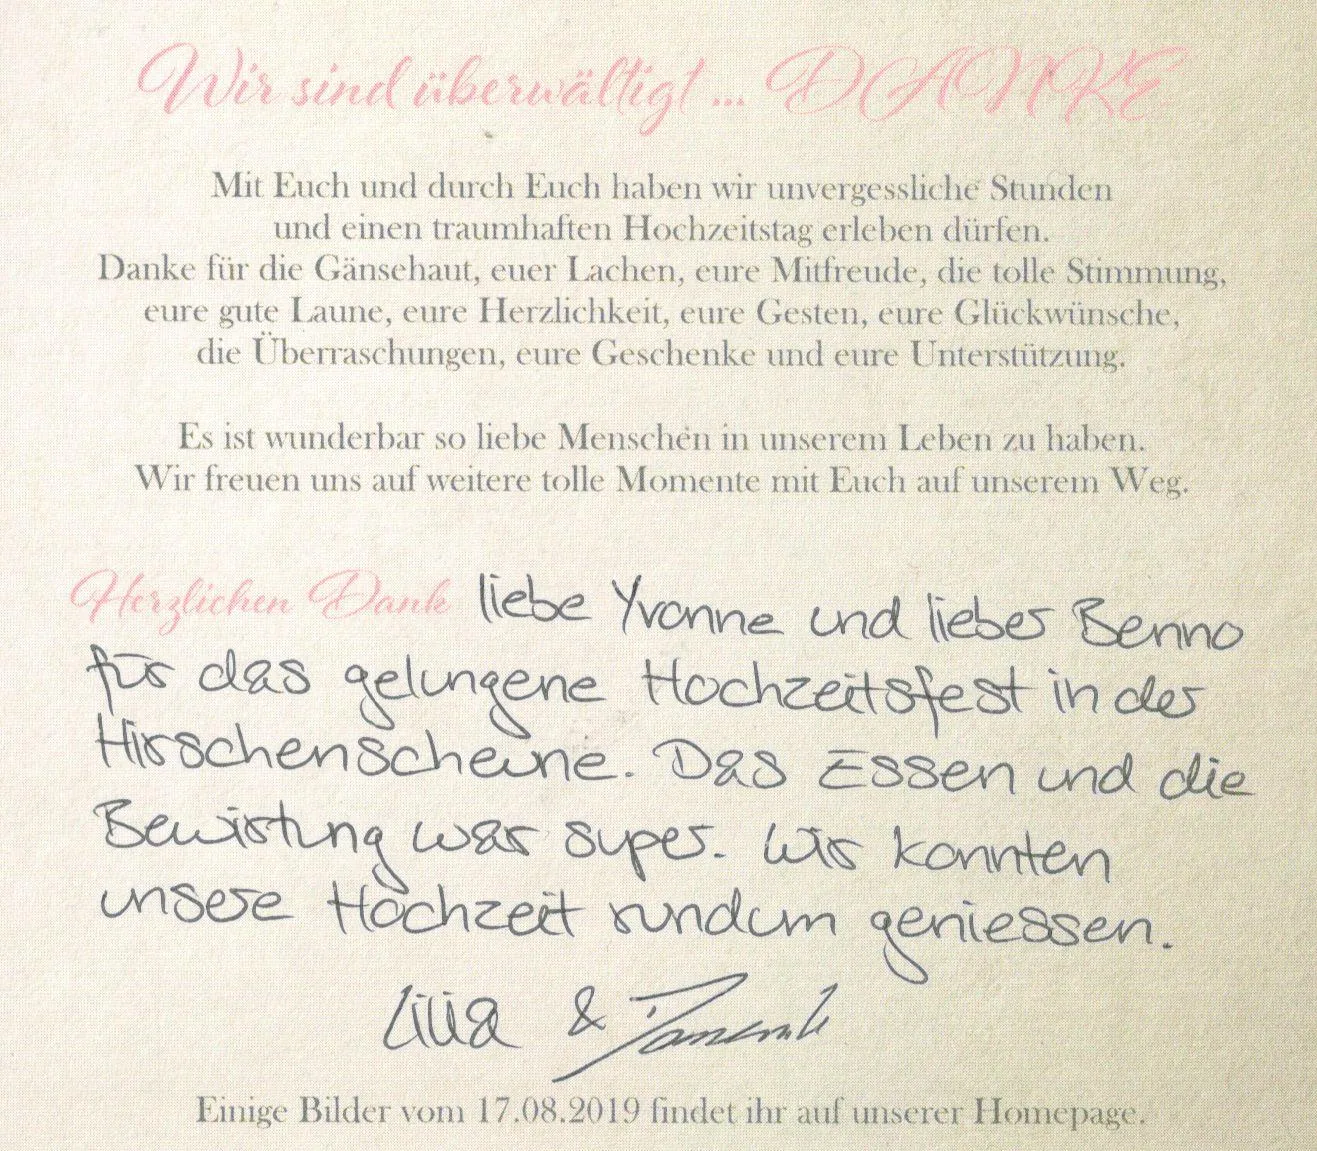 Wir sind überwältigt ... DANKE
Mit Euch und durch Euch haben wir unvergessliche Stunden
und einen traumhaften Hochzeitstag erleben dürfen.
Danke für die Gänsehaut, euer Lachen, eure Mitfreude, die tolle Stimmung,
eure gute Laune, eure Herzlichkeit, eure Gesten, eure Glückwünsche,
die Überraschungen, eure Geschenke und eure Unterstützung.
Es ist wunderbar so liebe Menschen in unserem Leben zu haben.
Wir freuen uns auf weitere tolle Momente mit Euch auf unserem Weg.
Herzlichen Dank liebe Yvonne und lieber Benno
für das gelungene Hochzeitsfest in der
Hirschenscheune. Das Essen und die
Bewirtung war super. Wir konnten
unsere Hochzeit rundum geniessen.
Lilia &
Einige Bilder vom 17.08.2019 findet ihr auf unserer Homepage.